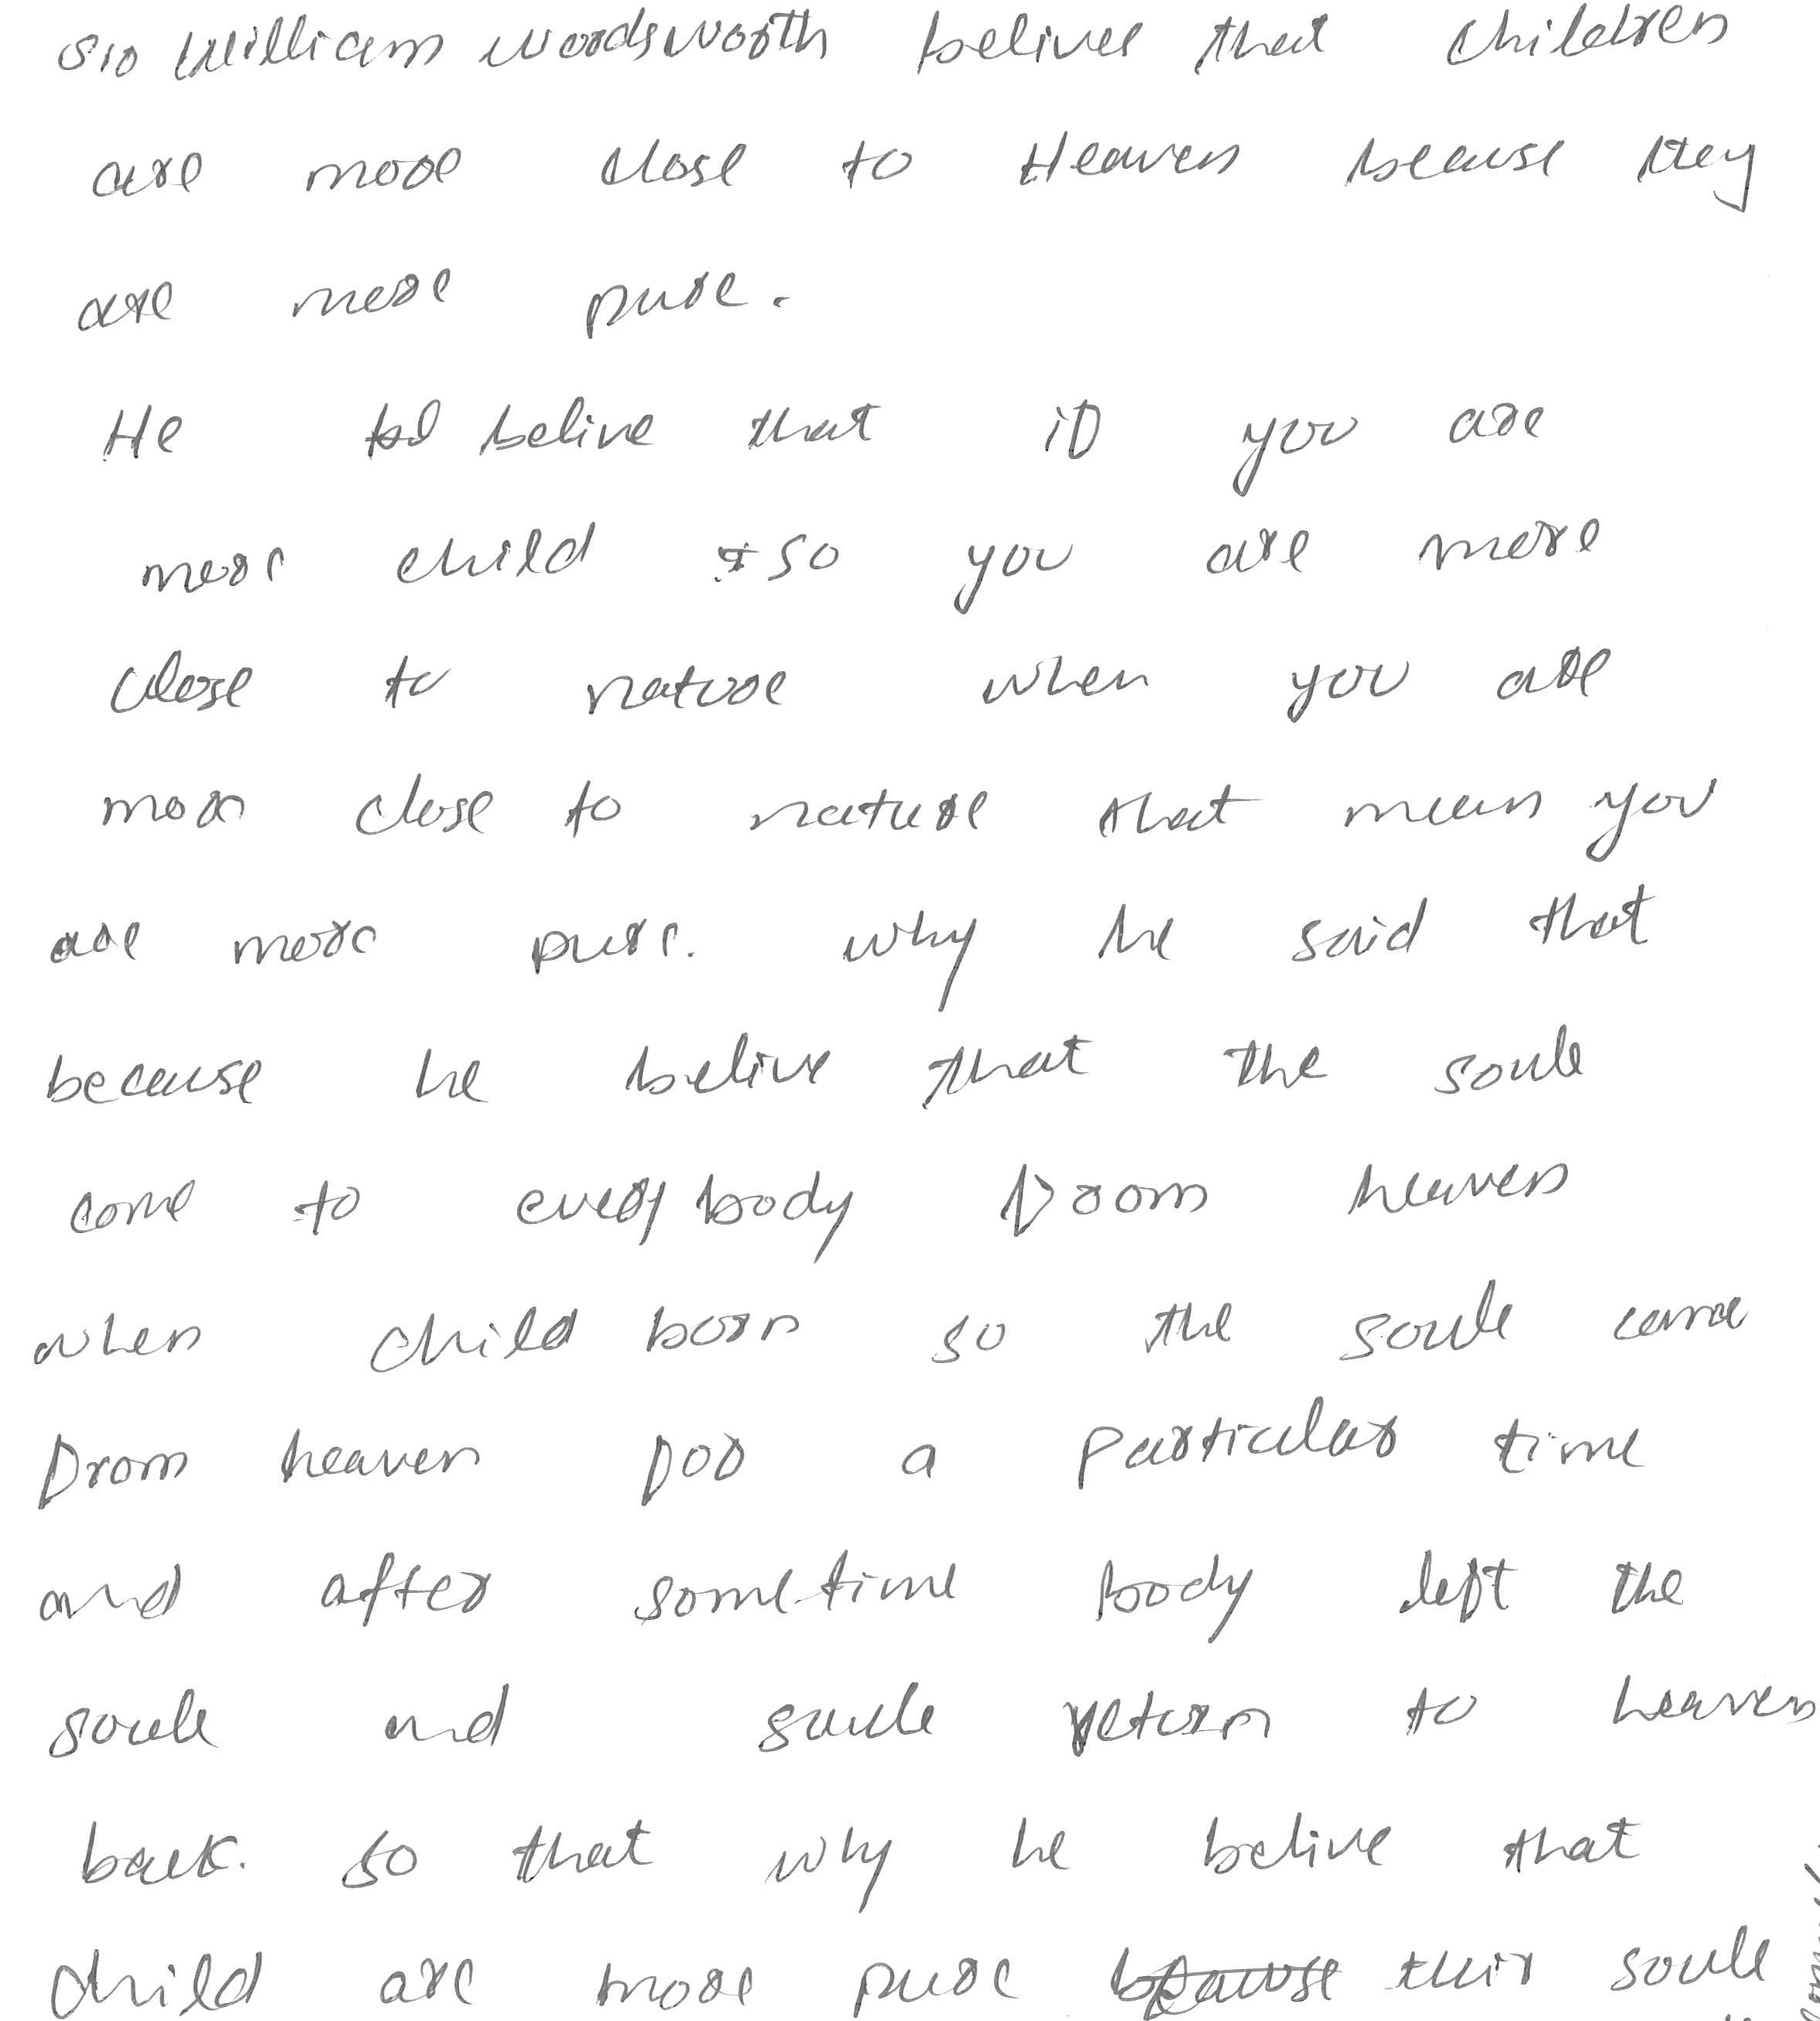 Sir William wordsworth belives that children
are more close to Heaven because they
are more pure.
He belive that if you are
more child so you are more
close to nature when you are
more close to nature that mean you
are more pure. why he said that
because he belive that the soule
come to every body from heaven
when child born so the soule came
from heaven for a particular time
and after sometime body left the
soule and soule return to heaven
back. so that why he belive that
child are more pure because thir soule